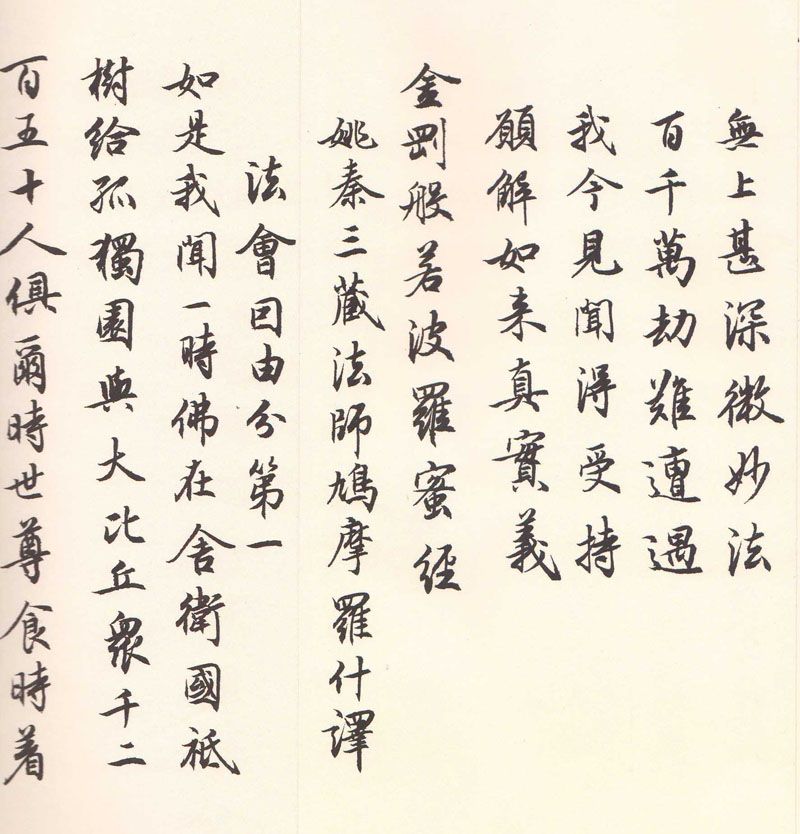 無上甚深微妙法
百千萬劫難遭遇
我今見聞得受持
願解如来真實義
金剛般若波羅蜜經
姚秦三藏法師鳩摩羅什譯
法會因由分第一
如是我聞一時佛在舍衛國祇
樹給孤獨園與大比丘衆千二
百五十人俱爾時世尊食時着